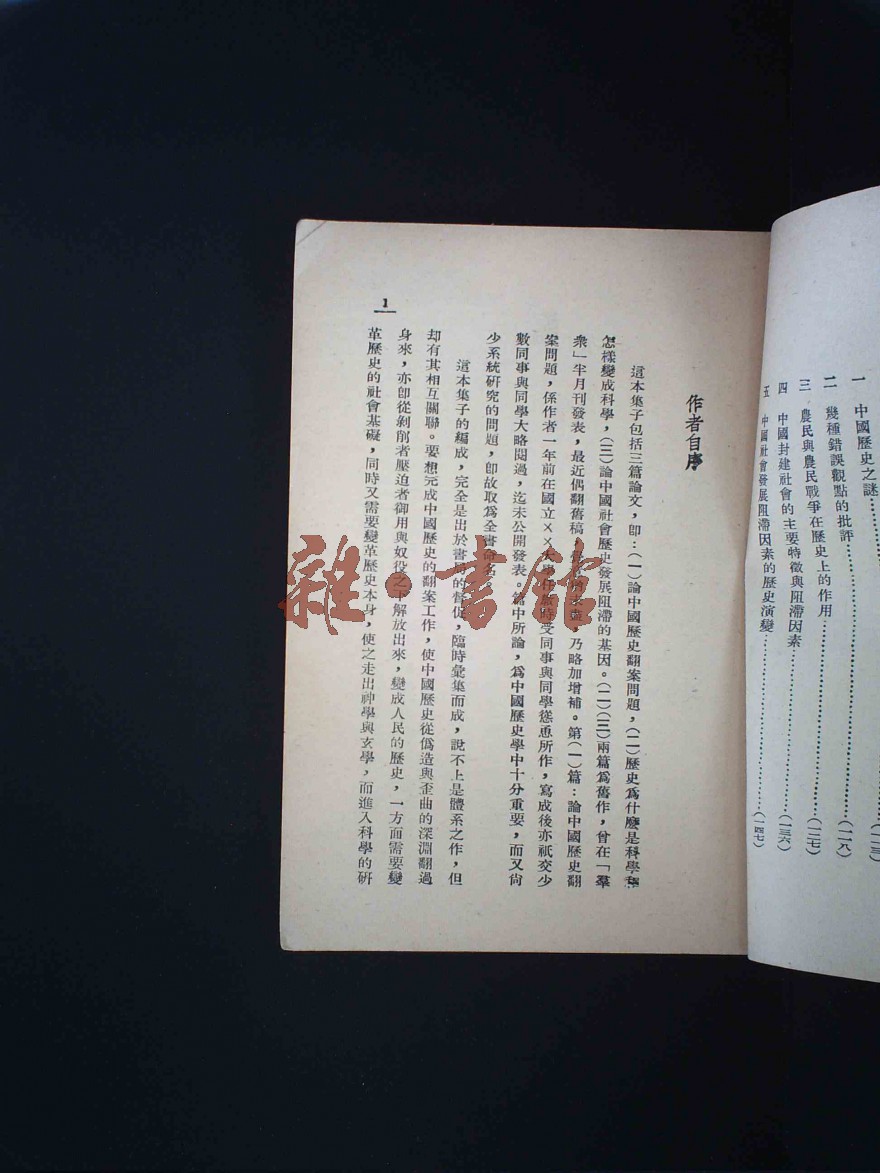 一 中國歷史之謎……………(一一三)
二 幾種錯誤觀點的批評……………(一一八)
三 農民與農民戰爭在歷史上的作用……………(一二七)
四 中國封建社會的主要特徵與阻滯因素……………(一三六)
五 中國社會發展阻滯因素的歷史演變……………(一四七)
作者自序
這本集子包括三篇論文，卽：(一)論中國歷史翻案問題，(二)歷史爲什麼是科學和
怎樣變成科學，(三)論中國社會歷史發展阻滯的基因。(二)(三)兩篇爲舊作，曾在「羣
衆」半月刊發表，最近偶翻舊稿，猶未盡，乃略加增補。第(一)篇：論中國歷史翻
案問題，係作者一年前在國立××大學任敎時受同事與同學慫恿所作，寫成後亦祇交少
數同事與同學大略閱過，迄未公開發表。篇中所論，爲中國歷史學中十分重要，而又尙
少系統研究的問題，卽故取爲全書命名。
這本集子的編成，完全是出於書店的督促，臨時彙集而成，說不上是體系之作，但
却有其相互關聯。要想完成中國歷史的翻案工作，使中國歷史從僞造與歪曲的深淵翻過
身來，亦卽從剝削者壓迫者御用與奴役之下解放出來，變成人民的歷史，一方面需要變
革歷史的社會基礎，同時又需要變革歷史本身，使之走出神學與玄學，而進入科學的研
1
雜·書館